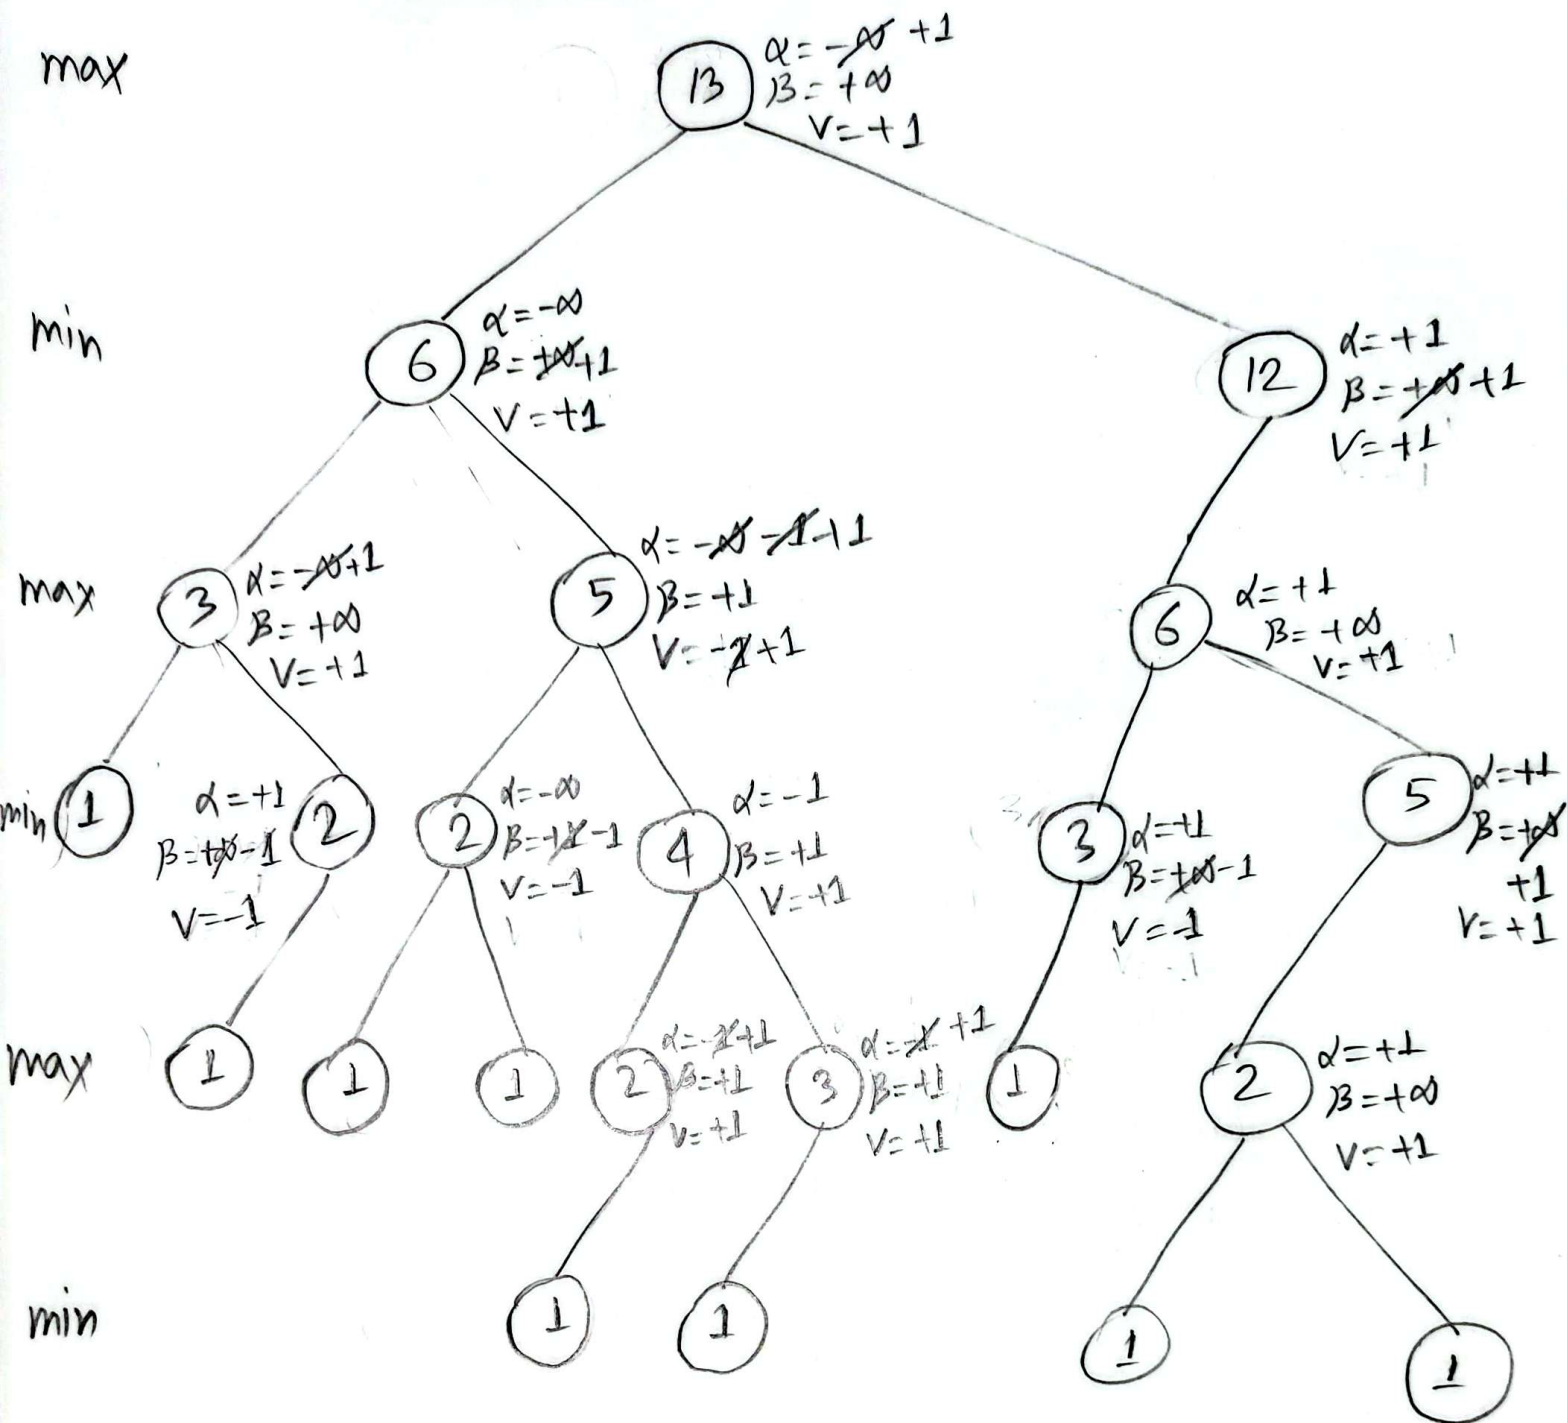 max
13
α = -∞ +1
β = +∞
V = +1
min
6
α = -∞
β = +∞ +1
V = +1
12
α = +1
β = +∞ +1
V = +1
max
3
α = -∞ +1
β = +∞
V = +1
5
α = -∞ -1 +1
β = +1
V = -1 +1
6
α = +1
β = +∞
V = +1
min
1
α = +1
β = +∞ -1
V = -1
2
2
α = -∞
β = +1 -1
V = -1
4
α = -1
β = +1
V = +1
3
α = +1
β = +∞ -1
V = -1
5
α = +1
β = +∞
+1
V = +1
max
1
1
1
2
α = -1 +1
β = +1
V = +1
3
α = -1 +1
β = +1
V = +1
1
2
α = +1
β = +∞
V = +1
min
1
1
1
1